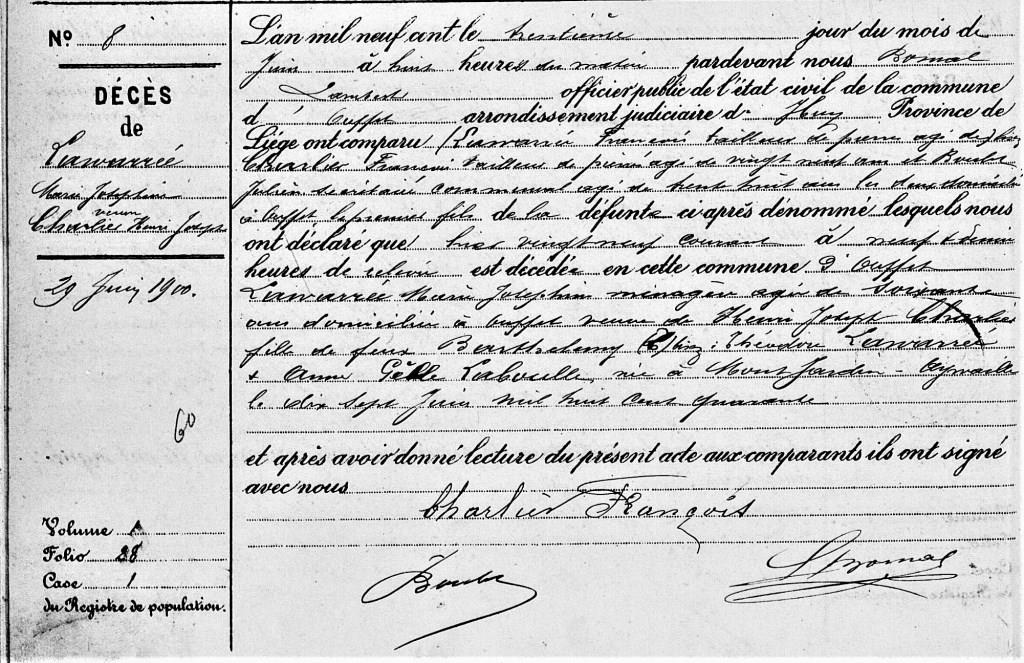 Nº 8
DÉCÈS
de
Lawarrée
Marie Josephine
veuve
Charlier Henri Joseph
29 Juin 1900.
60
Volume A
Folio 28
Case 1
du Registre de population.
L'an mil neuf cent le trentième jour du mois de
Juin à huit heures du matin pardevant nous Bomal
Lambert officier public de l'état civil de la commune
d' Ouffet arrondissement judiciaire de Huy Province de
Liége ont comparu (Lawarrée François tailleur de pierre agé de) biez
Charlier François tailleur de pierre agé de vingt neuf ans et Boulet
Julien secrétaire communal agé de trente huit ans les deux domiciliés
à Ouffet le premier fils de la défunte ci après dénommé lesquels nous
ont déclaré que hier vingt neuf courant à neuf & demie
heures de relevée est décédée en cette commune d'Ouffet
Lawarrée Marie Josephine ménagère agée de soixante
ans domiciliée à Ouffet veuve de Henri Joseph Charlier
fille de feux Barthelemy Theodore Lawarrée
& Anne Laboulle, née à Mont Jardin - Aywaille
le dix sept Juin mil huit cent quarante
et après avoir donné lecture du présent acte aux comparants ils ont signé
avec nous
Charlier François
Boulet
L Bomal